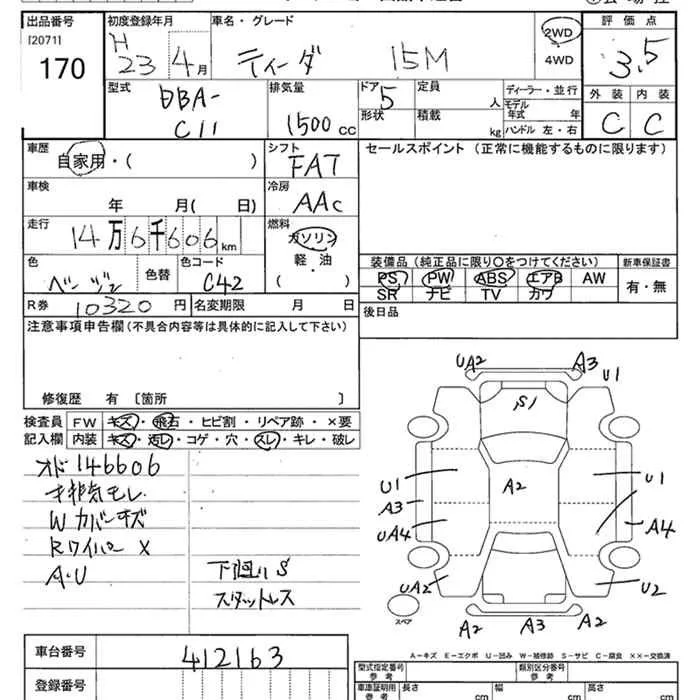 出品番号 初度登録年月 車名・グレード 評価点
[2071]
170
H 23 4月 ティーダ 15M 2WD 4WD 3.5
型式 排気量 ドア 定員 ディーラー・並行 外装 内装
DBA-C11 1500cc 5 人 モデル年式 年 C C
形状 積載 kg ハンドル 左・右
車歴 シフト セールスポイント (正常に機能するものに限ります)
自家用・( ) FAT
車検 冷房
年 月( 日) AAC
走行 燃料
14万6千606km ガソリン
軽・油
( )
色 色替 色コード 装備品(純正品に限り○をつけてください) 新車保証書
ベージュ C42 PS PW ABS エアB AW 有・無
SR ナビ TV カワ
R券 10320円 名変期限 月 日 後日品
注意事項申告欄(不具合内容等は具体的に記入して下さい)
修復歴 有 〔箇所 〕
検査員 FW キズ・飛石・ヒビ割・リペア跡・×要
記入欄 内装 キズ・汚レ・コゲ・穴・スレ・キレ・破レ
オド146606
排気モレ
Wカバーキズ
Rワイパー X
A・U
下回りS
スタットレス
UA2 A3 U1
S1
U1 A2 U1
A3 UA4 A4
UA2 U2
スペア
A2 A3 A2
A-キズ E-エクボ U-凹み W-補修跡 S-サビ C-腐食 ××-交換済
車台番号 412163
登録番号
型式指定番号 参考 類別区分番号 参考
車庫証明用 参考 長さ cm 幅 cm 高さ cm